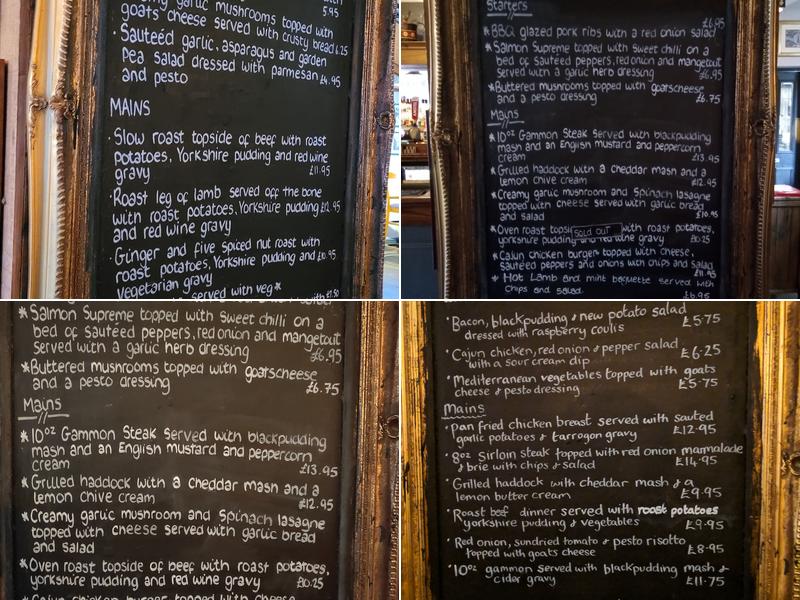 garlic mushrooms topped with
5.95
goats cheese served with crusty bread 6.25
· Sauteéd garlic, asparagus and garden
pea salad dressed with parmesan
and pesto £4.95
MAINS
· Slow roast topside of beef with roast
potatoes, Yorkshire pudding and red wine
gravy £11.95
· Roast leg of lamb served off the bone
with roast potatoes, Yorkshire pudding £12.95
and red wine gravy
· Ginger and five spiced nut roast with
roast potatoes, Yorkshire pudding and £10.95
Vegetarian gravy
served with veg*
£7.50
Starters
£6.95
*BBQ glazed pork ribs with a red onion salad
*Salmon Supreme topped with sweet chilli on a
bed of sauteéd peppers, red onion and mangetout
served with a garlic herb dressing £6.95
*Buttered mushrooms topped with goatscheese
and a pesto dressing £6.75
Mains
*10oz Gammon Steak served with blackpudding
mash and an English mustard and peppercorn
cream £13.95
*Grilled haddock with a cheddar mash and a
lemon chive cream £12.95
*Creamy garlic mushroom and Spinach lasagne
topped with cheese served with garlic bread
and salad £10.95
*Oven roast topsi sold out with roast potatoes,
yorkshire pudding and red wine gravy £10.25
*Cajun chicken burger topped with cheese,
Sauteéd peppers and onions with chips and salad
£11.95
*Hot Lamb and mint baguette served with
chips and salad £6.95
*Salmon Supreme topped with sweet chilli on a
bed of sauteéd peppers, red onion and mangetout
served with a garlic herb dressing £6.95
*Buttered mushrooms topped with goatscheese
and a pesto dressing £6.75
Mains
*10oz Gammon Steak served with blackpudding
mash and an English mustard and peppercorn
cream £13.95
*Grilled haddock with a cheddar mash and a
lemon chive cream £12.95
*Creamy garlic mushroom and Spinach lasagne
topped with cheese served with garlic bread
and salad
*Oven roast topside of beef with roast potatoes,
yorkshire pudding and red wine gravy £10.25
*Cajun chicken burger topped with cheese,
· Bacon, blackpudding & new potato salad
dressed with raspberry coulis £5.75
· Cajun chicken, red onion & pepper salad
with a sour cream dip £6.25
· Mediterranean vegetables topped with goats
cheese & pesto dressing £5.75
Mains
· Pan fried chicken breast served with sauted
garlic potatoes & tarragon gravy £12.95
· 8oz Sirloin steak topped with red onion marmalade
& brie with chips & salad £14.95
· Grilled haddock with cheddar mash & a
lemon butter cream £9.95
· Roast beef dinner served with roast potatoes
yorkshire pudding & vegetables £9.95
· Red onion, sundried tomato & pesto risotto
topped with goats cheese £8.95
· 10oz gammon served with blackpudding mash &
cider gravy £11.75